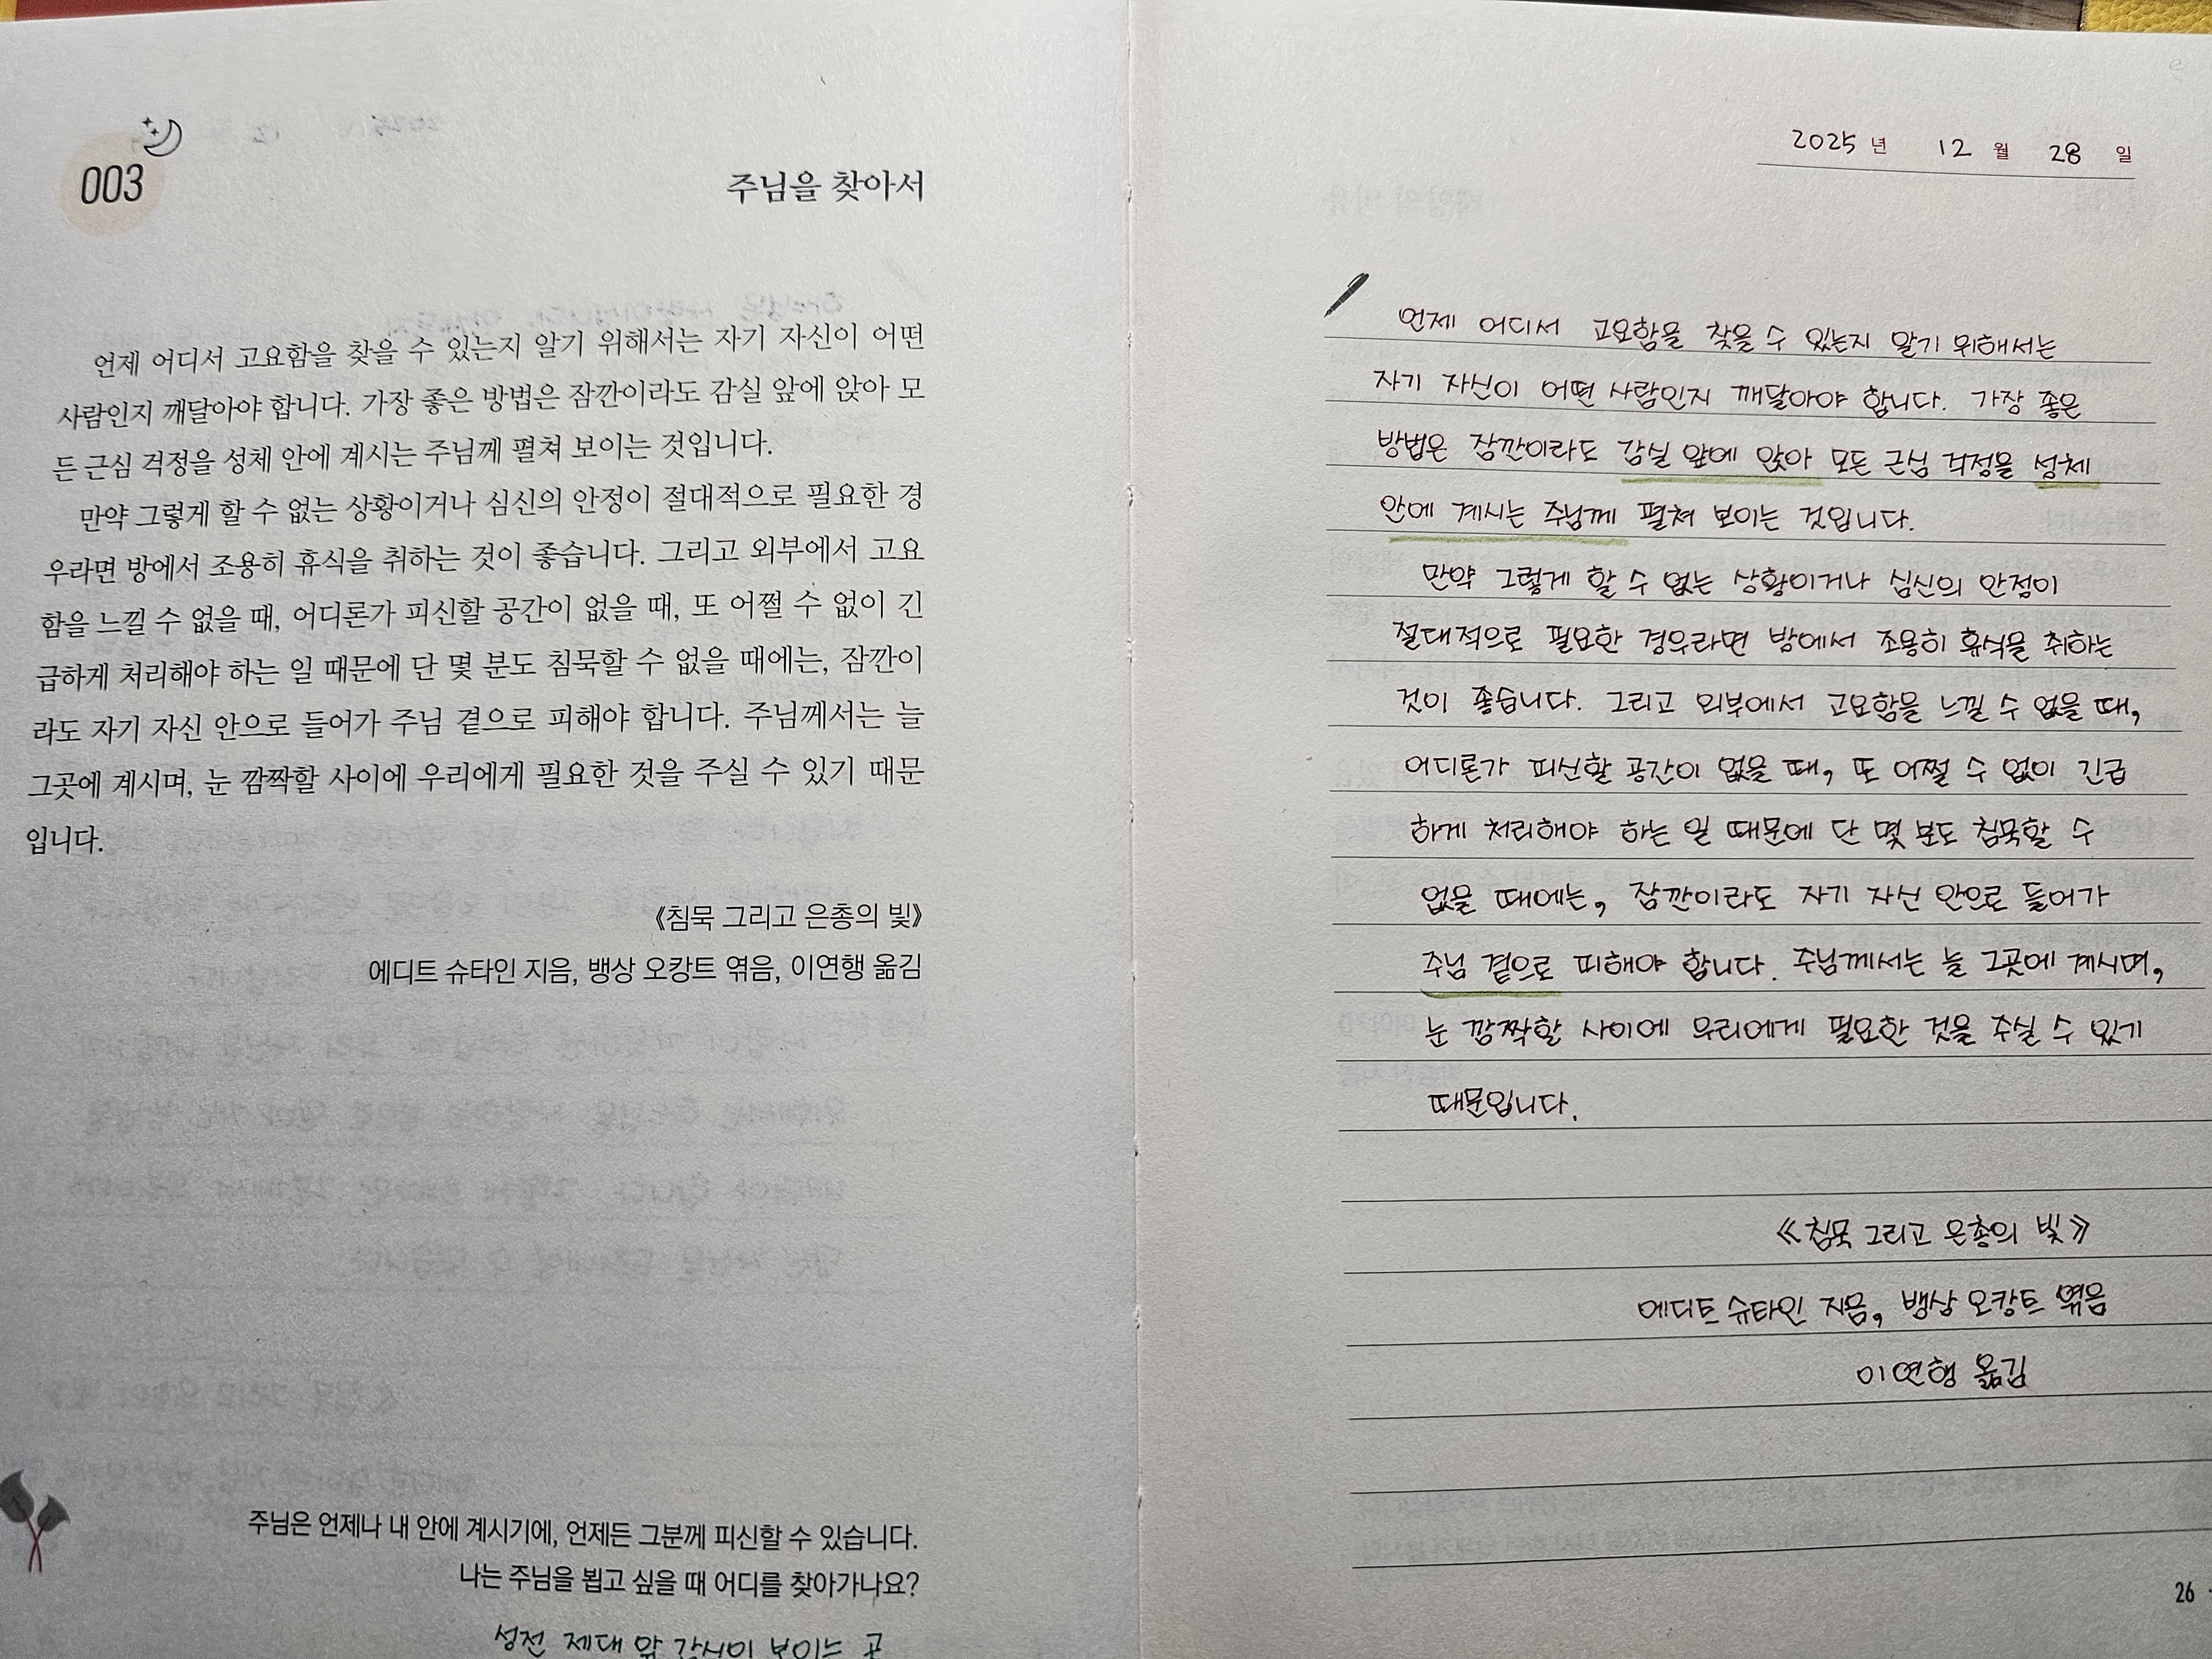 003
주님을 찾아서
언제 어디서 고요함을 찾을 수 있는지 알기 위해서는 자기 자신이 어떤
사람인지 깨달아야 합니다. 가장 좋은 방법은 잠깐이라도 감실 앞에 앉아 모
든 근심 걱정을 성체 안에 계시는 주님께 펼쳐 보이는 것입니다.
만약 그렇게 할 수 없는 상황이거나 심신의 안정이 절대적으로 필요한 경
우라면 방에서 조용히 휴식을 취하는 것이 좋습니다. 그리고 외부에서 고요
함을 느낄 수 없을 때, 어디론가 피신할 공간이 없을 때, 또 어쩔 수 없이 긴
급하게 처리해야 하는 일 때문에 단 몇 분도 침묵할 수 없을 때에는, 잠깐이
라도 자기 자신 안으로 들어가 주님 곁으로 피해야 합니다. 주님께서는 늘
그곳에 계시며, 눈 깜짝할 사이에 우리에게 필요한 것을 주실 수 있기 때문
입니다.
《침묵 그리고 은총의 빛》
에디트 슈타인 지음, 뱅상 오캉트 엮음, 이연행 옮김
주님은 언제나 내 안에 계시기에, 언제든 그분께 피신할 수 있습니다.
나는 주님을 뵙고 싶을 때 어디를 찾아가나요?
성전 제대 앞 감실이 보이는 곳
2025년 12월 28일
언제 어디서 고요함을 찾을 수 있는지 알기 위해서는
자기 자신이 어떤 사람인지 깨달아야 합니다. 가장 좋은
방법은 잠깐이라도 감실 앞에 앉아 모든 근심 걱정을 성체
안에 계시는 주님께 펼쳐 보이는 것입니다.
만약 그렇게 할 수 없는 상황이거나 심신의 안정이
절대적으로 필요한 경우라면 방에서 조용히 휴식을 취하는
것이 좋습니다. 그리고 외부에서 고요함을 느낄 수 없을 때,
어디론가 피신할 공간이 없을 때, 또 어쩔 수 없이 긴급
하게 처리해야 하는 일 때문에 단 몇 분도 침묵할 수
없을 때에는, 잠깐이라도 자기 자신 안으로 들어가
주님 곁으로 피해야 합니다. 주님께서는 늘 그곳에 계시며,
눈 깜짝할 사이에 우리에게 필요한 것을 주실 수 있기
때문입니다.
《침묵 그리고 은총의 빛》
에디트 슈타인 지음, 뱅상 오캉트 엮음
이연행 옮김
26